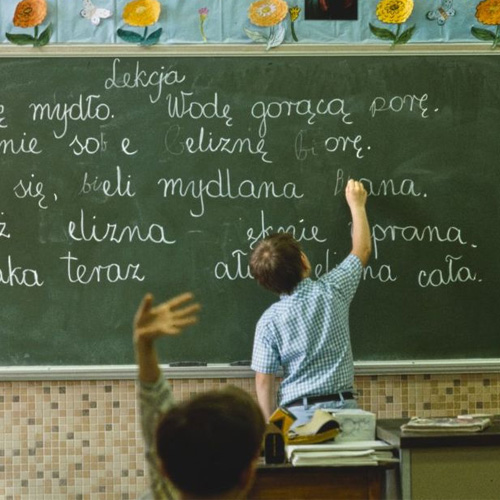 Lekcja
ę mydło. Wodę gorącą porę.
nie sobie Bieliznę biorę.
się, bieli mydlana Piana.
ż elizna ęknie prana.
aka teraz cała.